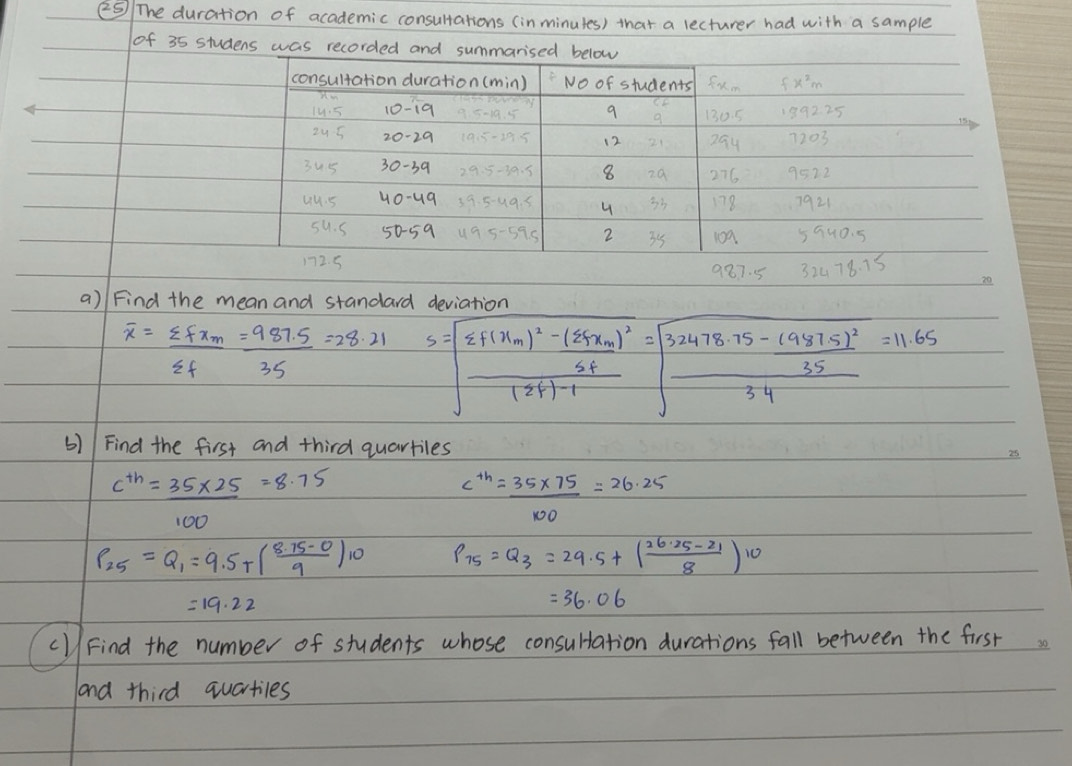 25 The duration of academic consultations (in minutes) that a lecturer had with a sample
of 35 studens was recorded and summarised below
consultation duration (min) No of students fxm fx²m
xm
14.5 10-19 9.5-19.5 9 9 130.5 1892.25
24.5 20-29 19.5-29.5 12 21 294 7203
34.5 30-39 29.5-39.5 8 29 276 9522
44.5 40-49 39.5-49.5 4 33 178 7921
54.5 50-59 49.5-59.5 2 35 109 5940.5
172.5 987.5 32478.75
a) Find the mean and standard deviation
x̄ = Σfxm / Σf = 987.5 / 35 = 28.21 s = √((Σf(xm)² - (Σfxm)² / Σf) / ((Σf)-1)) = √((32478.75 - (987.5)² / 35) / 34) = 11.65
b) Find the first and third quartiles
cth = 35×25 / 100 = 8.75 cth = 35×75 / 100 = 26.25
P25 = Q1 = 9.5 + (8.75-0 / 9) 10 P75 = Q3 = 29.5 + (26.25-21 / 8) 10
= 19.22 = 36.06
c) Find the number of students whose consultation durations fall between the first
and third quartiles
15
20
25
30